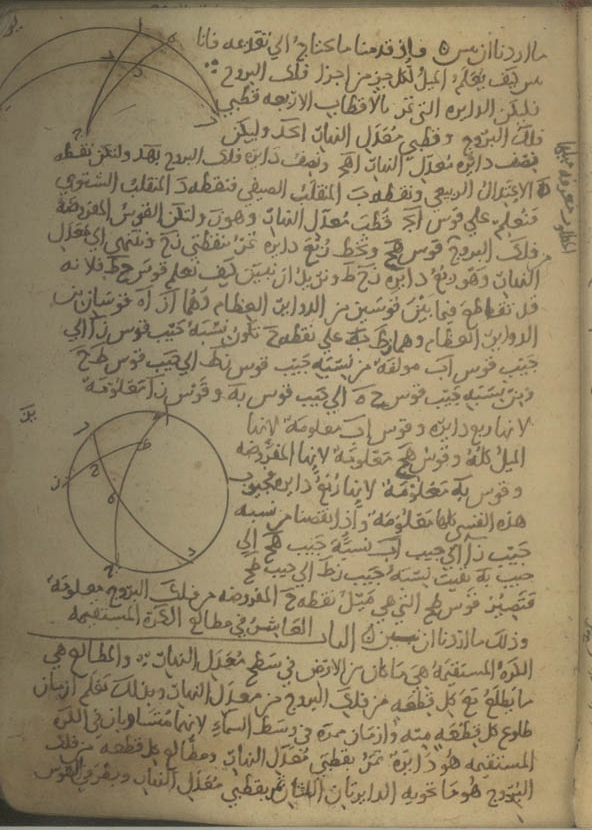 ما اردنا ان نبين ه واذ قدمنا ما نحتاج الي تقديمه فانا
نبين كيف يعلم الميل لكل جزء من اجزا فلك البروج
فليكن الدايره التي تمر بالاقطاب الاربعه قطبي
فلك البروج وقطبي معدل النهار ابجد وليكن
نصف دائره معدل النهار اهج ونصف دايره فلك البروج بهد ولتكن نقطه
ه الاعتدال الربيعي ونقطه ب المنقلب الصيفي فنقطه د المنقلب الشتوي
فنعلم علي قوس ابج قطب معدل النهار وهو ز ولتكن القوس المفروضه
من فلك البروج قوس هح ونخط ربع دايره تمر بنقطتي زح وتنتهي الي معدل
النهار وهو ربع دايره زحط ونريد ان نبين كيف نعلم قوس حط فلانه
قد تقاطع فيما بين قوسين من الدواير العظام وهما از اه قوسان من
الدواير العظام وهما زط به علي نقطه ح تكون نسبه جيب قوس زا الي
جيب قوس اب مولفه من نسبه جيب قوس زط الي جيب قوس طح
ومن نسبه جيب قوس حه الي جيب قوس به وقوس زا معلومه
لانها ربع دايره وقوس اب معلومه لانها
الميل كله وقوس هح معلومه لانها المفروضه
وقوس به معلومه لانها ربع دايره فجيوب
هذه القسي كلها معلومه واذا نقصنا من نسبه
جيب زا الي جيب اب نسبه جيب هح الي
جيب به بقيت نسبه جيب زط الي جيب طح
فتصير قوس طح التي هي ميل نقطه ح المفروضه من فلك البروج معلومه
وذلك ما اردنا ان نبين ه الباب العاشر في مطالع الكرة المستقيمه
الكره المستقيمه هي ما كان من الارض في سطح معدل النهار والمطالع هي
ما يطلع مع كل قطعه من فلك البروج من معدل النهار وبذلك تعلم ازمان
طلوع كل قطعه منه وازمان ممره في وسط السماء لانهما متساويان في الكره
المستقيمه هو دايره تمر بقطبي معدل النهار ومطالع كل قطعه من فلك
البروج هو ما تحويه الدايرتان اللتان تمر بقطبي معدل النهار وبطرفي القوس